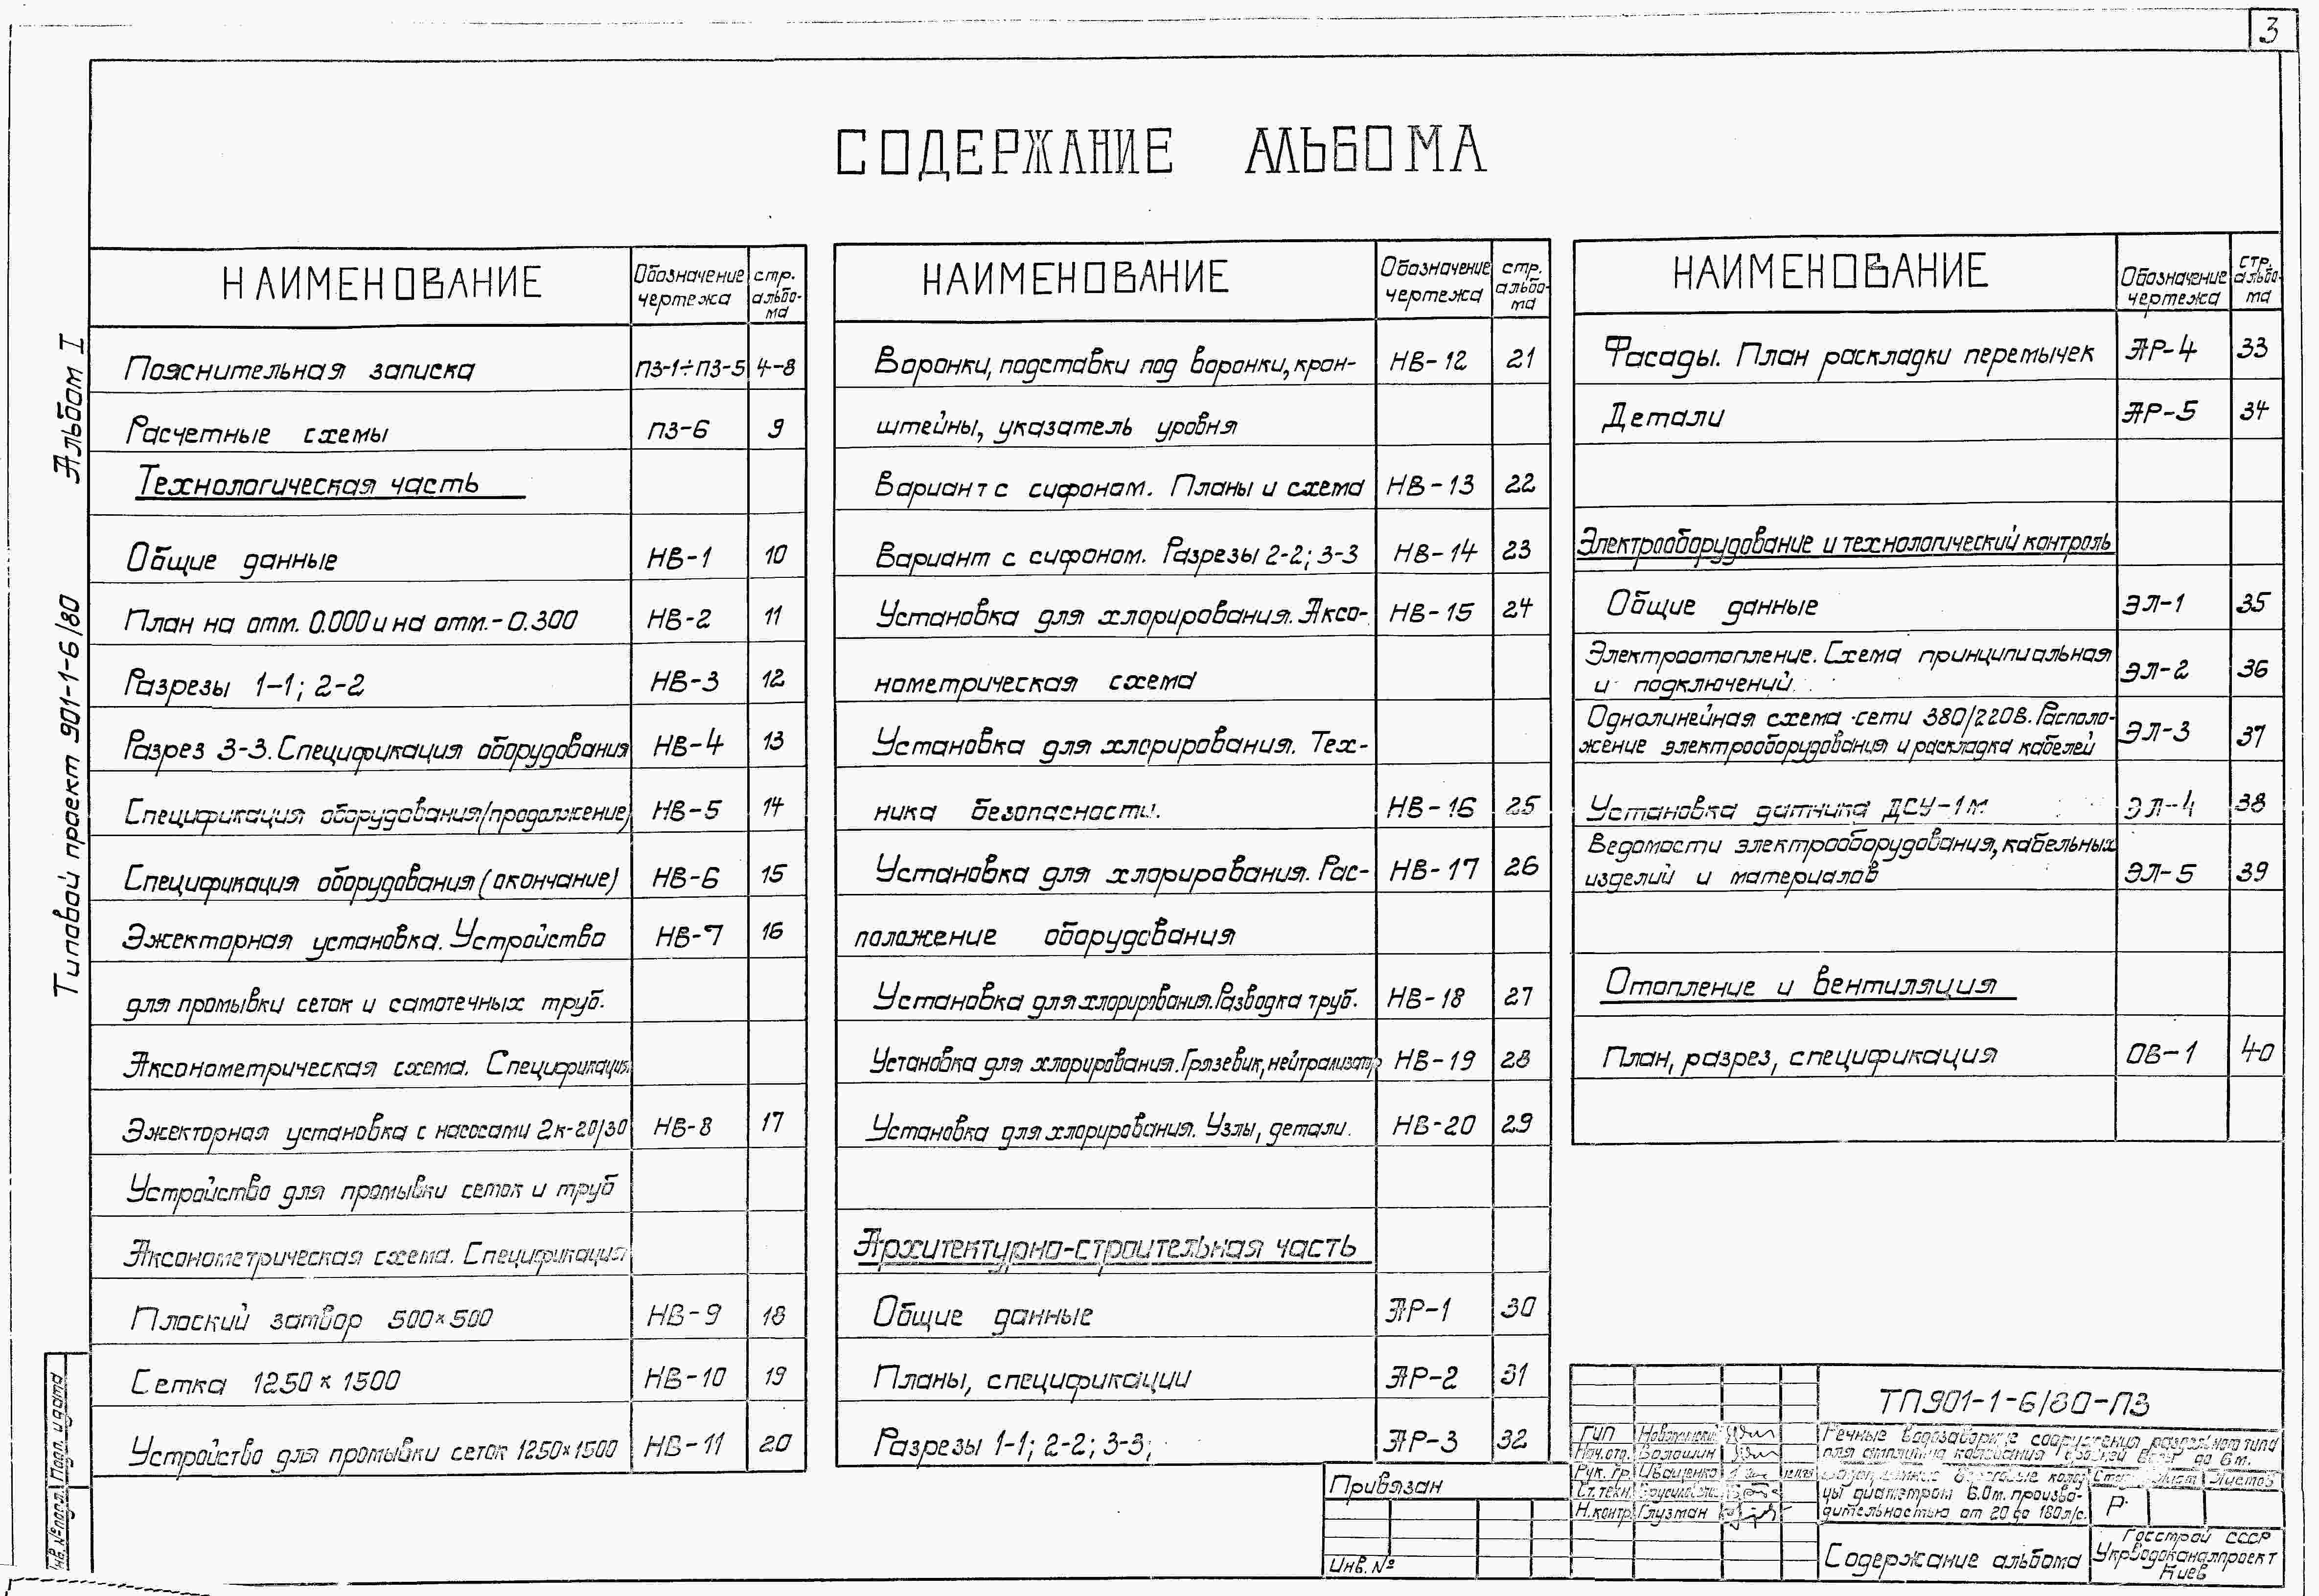 3
СОДЕРЖАНИЕ АЛЬБОМА
Альбом I
Типовой проект 901-1-6/80
НАИМЕНОВАНИЕ Обозначение чертежа стр. альбо-ма
Пояснительная записка ПЗ-1÷ПЗ-5 4-8
Расчетные схемы ПЗ-6 9
Технологическая часть
Общие данные НВ-1 10
План на отм. 0.000 и на отм.-0.300 НВ-2 11
Разрезы 1-1; 2-2 НВ-3 12
Разрез 3-3. Спецификация оборудования НВ-4 13
Спецификация оборудования (продолжение) НВ-5 14
Спецификация оборудования (окончание) НВ-6 15
Эжекторная установка. Устройство НВ-7 16
для промывки сеток и самотечных труб.
Аксонометрическая схема. Спецификация
Эжекторная установка с насосами 2к-20/30 НВ-8 17
Устройство для промывки сеток и труб
Аксонометрическая схема. Спецификация
Плоский затвор 500×500 НВ-9 18
Сетка 1250×1500 НВ-10 19
Устройство для промывки сеток 1250×1500 НВ-11 20
НАИМЕНОВАНИЕ Обозначение чертежа стр. альбо-ма
Воронки, подставки под воронки, крон- НВ-12 21
штейны, указатель уровня
Вариант с сифоном. Планы и схема НВ-13 22
Вариант с сифоном. Разрезы 2-2; 3-3 НВ-14 23
Установка для хлорирования. Аксо- НВ-15 24
нометрическая схема
Установка для хлорирования. Тех-
ника безопасности. НВ-16 25
Установка для хлорирования. Рас- НВ-17 26
положение оборудования
Установка для хлорирования. Разводка труб. НВ-18 27
Установка для хлорирования. Грязевик, нейтрализатор НВ-19 28
Установка для хлорирования. Узлы, детали. НВ-20 29
Архитектурно-строительная часть
Общие данные АР-1 30
Планы, спецификации АР-2 31
Разрезы 1-1; 2-2; 3-3; АР-3 32
НАИМЕНОВАНИЕ Обозначение чертежа стр. альбо-ма
Фасады. План раскладки перемычек АР-4 33
Детали АР-5 34
Электрооборудование и технологический контроль
Общие данные ЭЛ-1 35
Электроотопление. Схема принципиальная
и подключений. ЭЛ-2 36
Однолинейная схема сети 380/220В. Располо-
жение электрооборудования и раскладка кабелей ЭЛ-3 37
Установка датчика ДСУ-1м ЭЛ-4 38
Ведомости электрооборудования, кабельных
изделий и материалов ЭЛ-5 39
Отопление и вентиляция
План, разрез, спецификация ОВ-1 40
Привязан
Инв. №
ТП901-1-6/80-ПЗ
ГИП
Нач. отд. Волошин
Рук. гр. Иващенко
Ст. техн.
Н. контр. Глузман
Речные водозаборные сооружения раздельного типа
для амплитуд колебания уровней воды до 6м.
береговые колод-
цы диаметром 6.0м. произво-
дительностью от 20 до 180л/с.
Лист Листов
Р
Содержание альбома
Госстрой СССР
Укрводоканалпроект
Киев
Инв. № подл. Подп. и дата